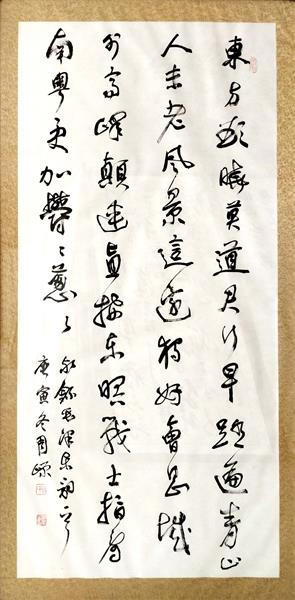 東方欲曉莫道君行早踏遍青山
人未老風景這邊獨好會昌城
外高峰顛連直接東溟戰士指看
南粤更加鬱〻蔥〻
錄毛澤東詞
庚寅冬